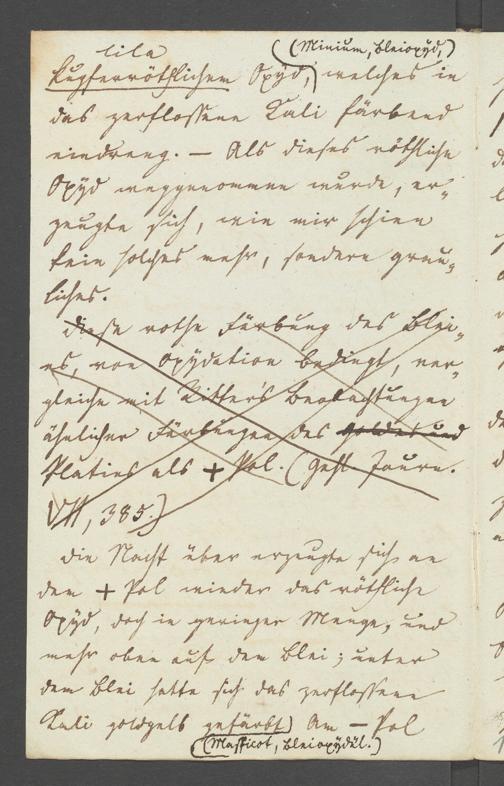 lila (Minium, Bleioxÿd,)
kupferröthlichem Oxÿd, welches in
das zerflossene Kali färbend
eindrang. — Als dieses röthliche
Oxÿd weggenommen wurde, er-
zeugte sich, wie mir schien
kein solches mehr, sondern grau-
liches.
Diese rothe Färbung des Blei-
es, von Oxÿdation bedingt, ver-
gleiche mit Ritter's Beobachtungen
ähnlicher Färbungen des Goldes und
Platins als + Pol. (Gehl. Journ.
VII, 385.)
Die Nacht über erzeugte sich an
dem + Pol wieder das röthliche
Oxÿd, doch in geringer Menge, und
mehr oben auf dem Blei; unter
dem Blei hatte sich das zerflossene
Kali goldgelb gefärbt) Am — Pol
(Massicot, Bleioxÿdül.)